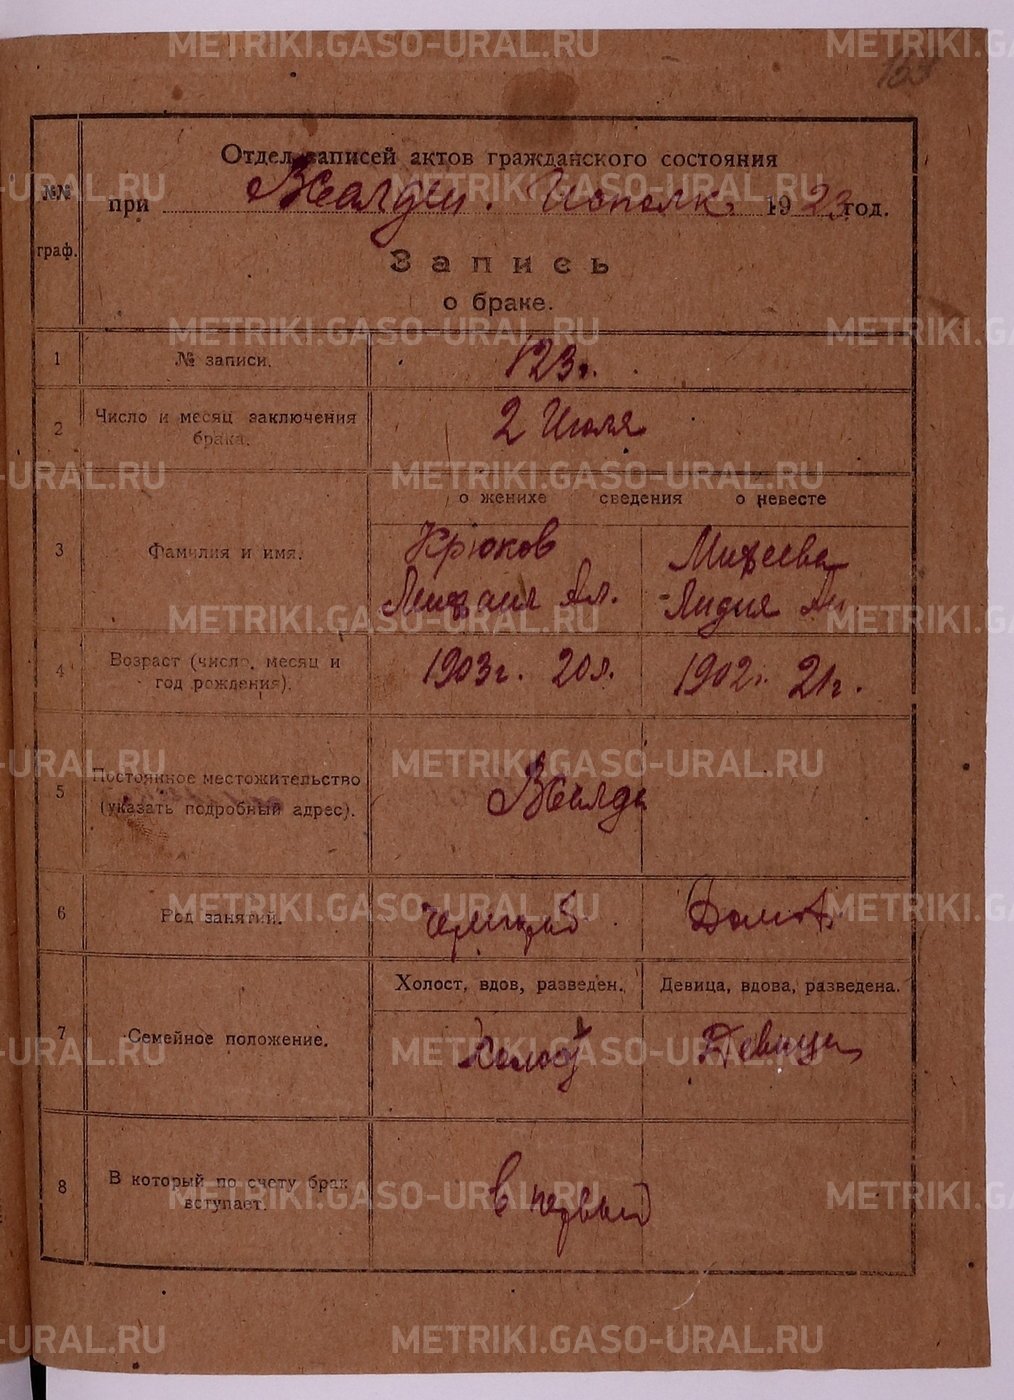 METRIKI.GASO-URAL.RU
Отдел записей актов гражданского состояния
№№ граф.
при В.Салдин. Исполк. 1923 год.
Запись
о браке.
1 № записи. 123.
2 Число и месяц заключения брака. 2 Июля
о женихе сведения о невесте
3 Фамилия и имя.
Крюков Михеева
Михаил Ал. Лидия Ан.
4 Возраст (число, месяц и год рождения). 1903г. 20л. 1902г. 21г.
5 Постоянное местожительство (указать подробный адрес). В Салда
6 Род занятий.
Холост, вдов, разведен. Девица, вдова, разведена.
7 Семейное положение. Холост Девица
8 В который по счету брак вступает. в первый